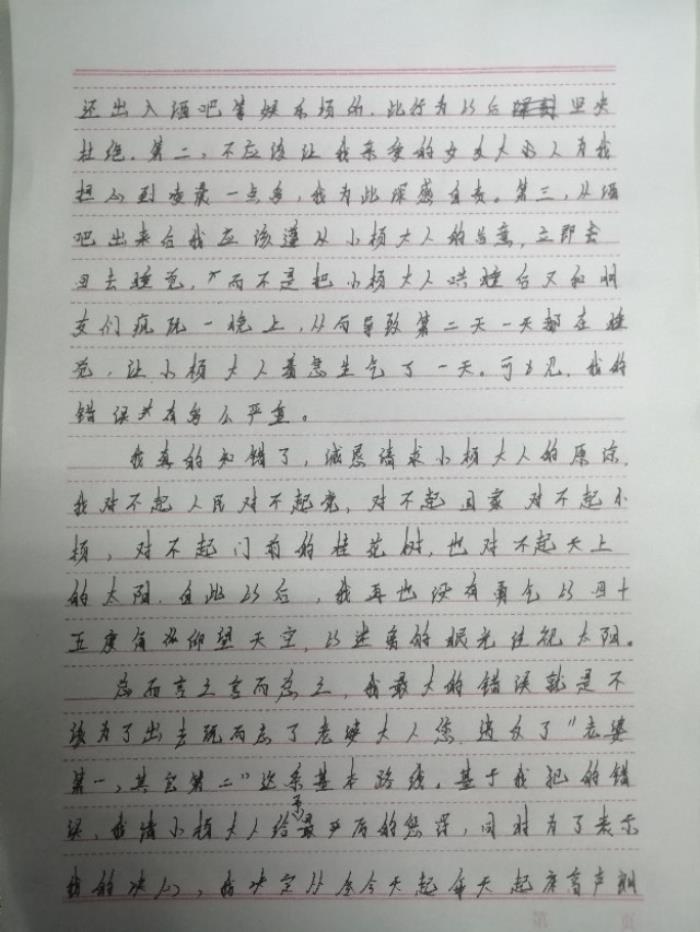 还出入酒吧等娱乐场所,此行为以后坚决
杜绝。第二,不应该让我亲爱的女友大小人为我
担心到凌晨一点多,我为此深感自责。第三,从酒
吧出来后我应该遵从小杨大人的旨意,立即去
回去睡觉,而不是把小杨大人哄睡后又和朋
友们疯玩一晚上,从而导致第二天一天都在睡
觉,让小杨大人着急生气了一天。可见,我的
错误有多么严重。
我真的知错了,诚恳请求小杨大人的原谅,
我对不起人民对不起党,对不起国家对不起小
杨,对不起门前的桂花树,也对不起天上
的太阳。自此以后,我再也没有勇气以四十
五度角仰望天空,以迷离的眼光注视太阳。
总而言之言而总之,我最大的错误就是不
该为了出去玩而忘了老婆大人您,违反了“老婆
第一,其它第二”这条基本路线。基于我犯的错
误,我请小杨大人给予最严厉的惩罚,同时为了表示
我的决心,我决定从今天起每天起床高声朗